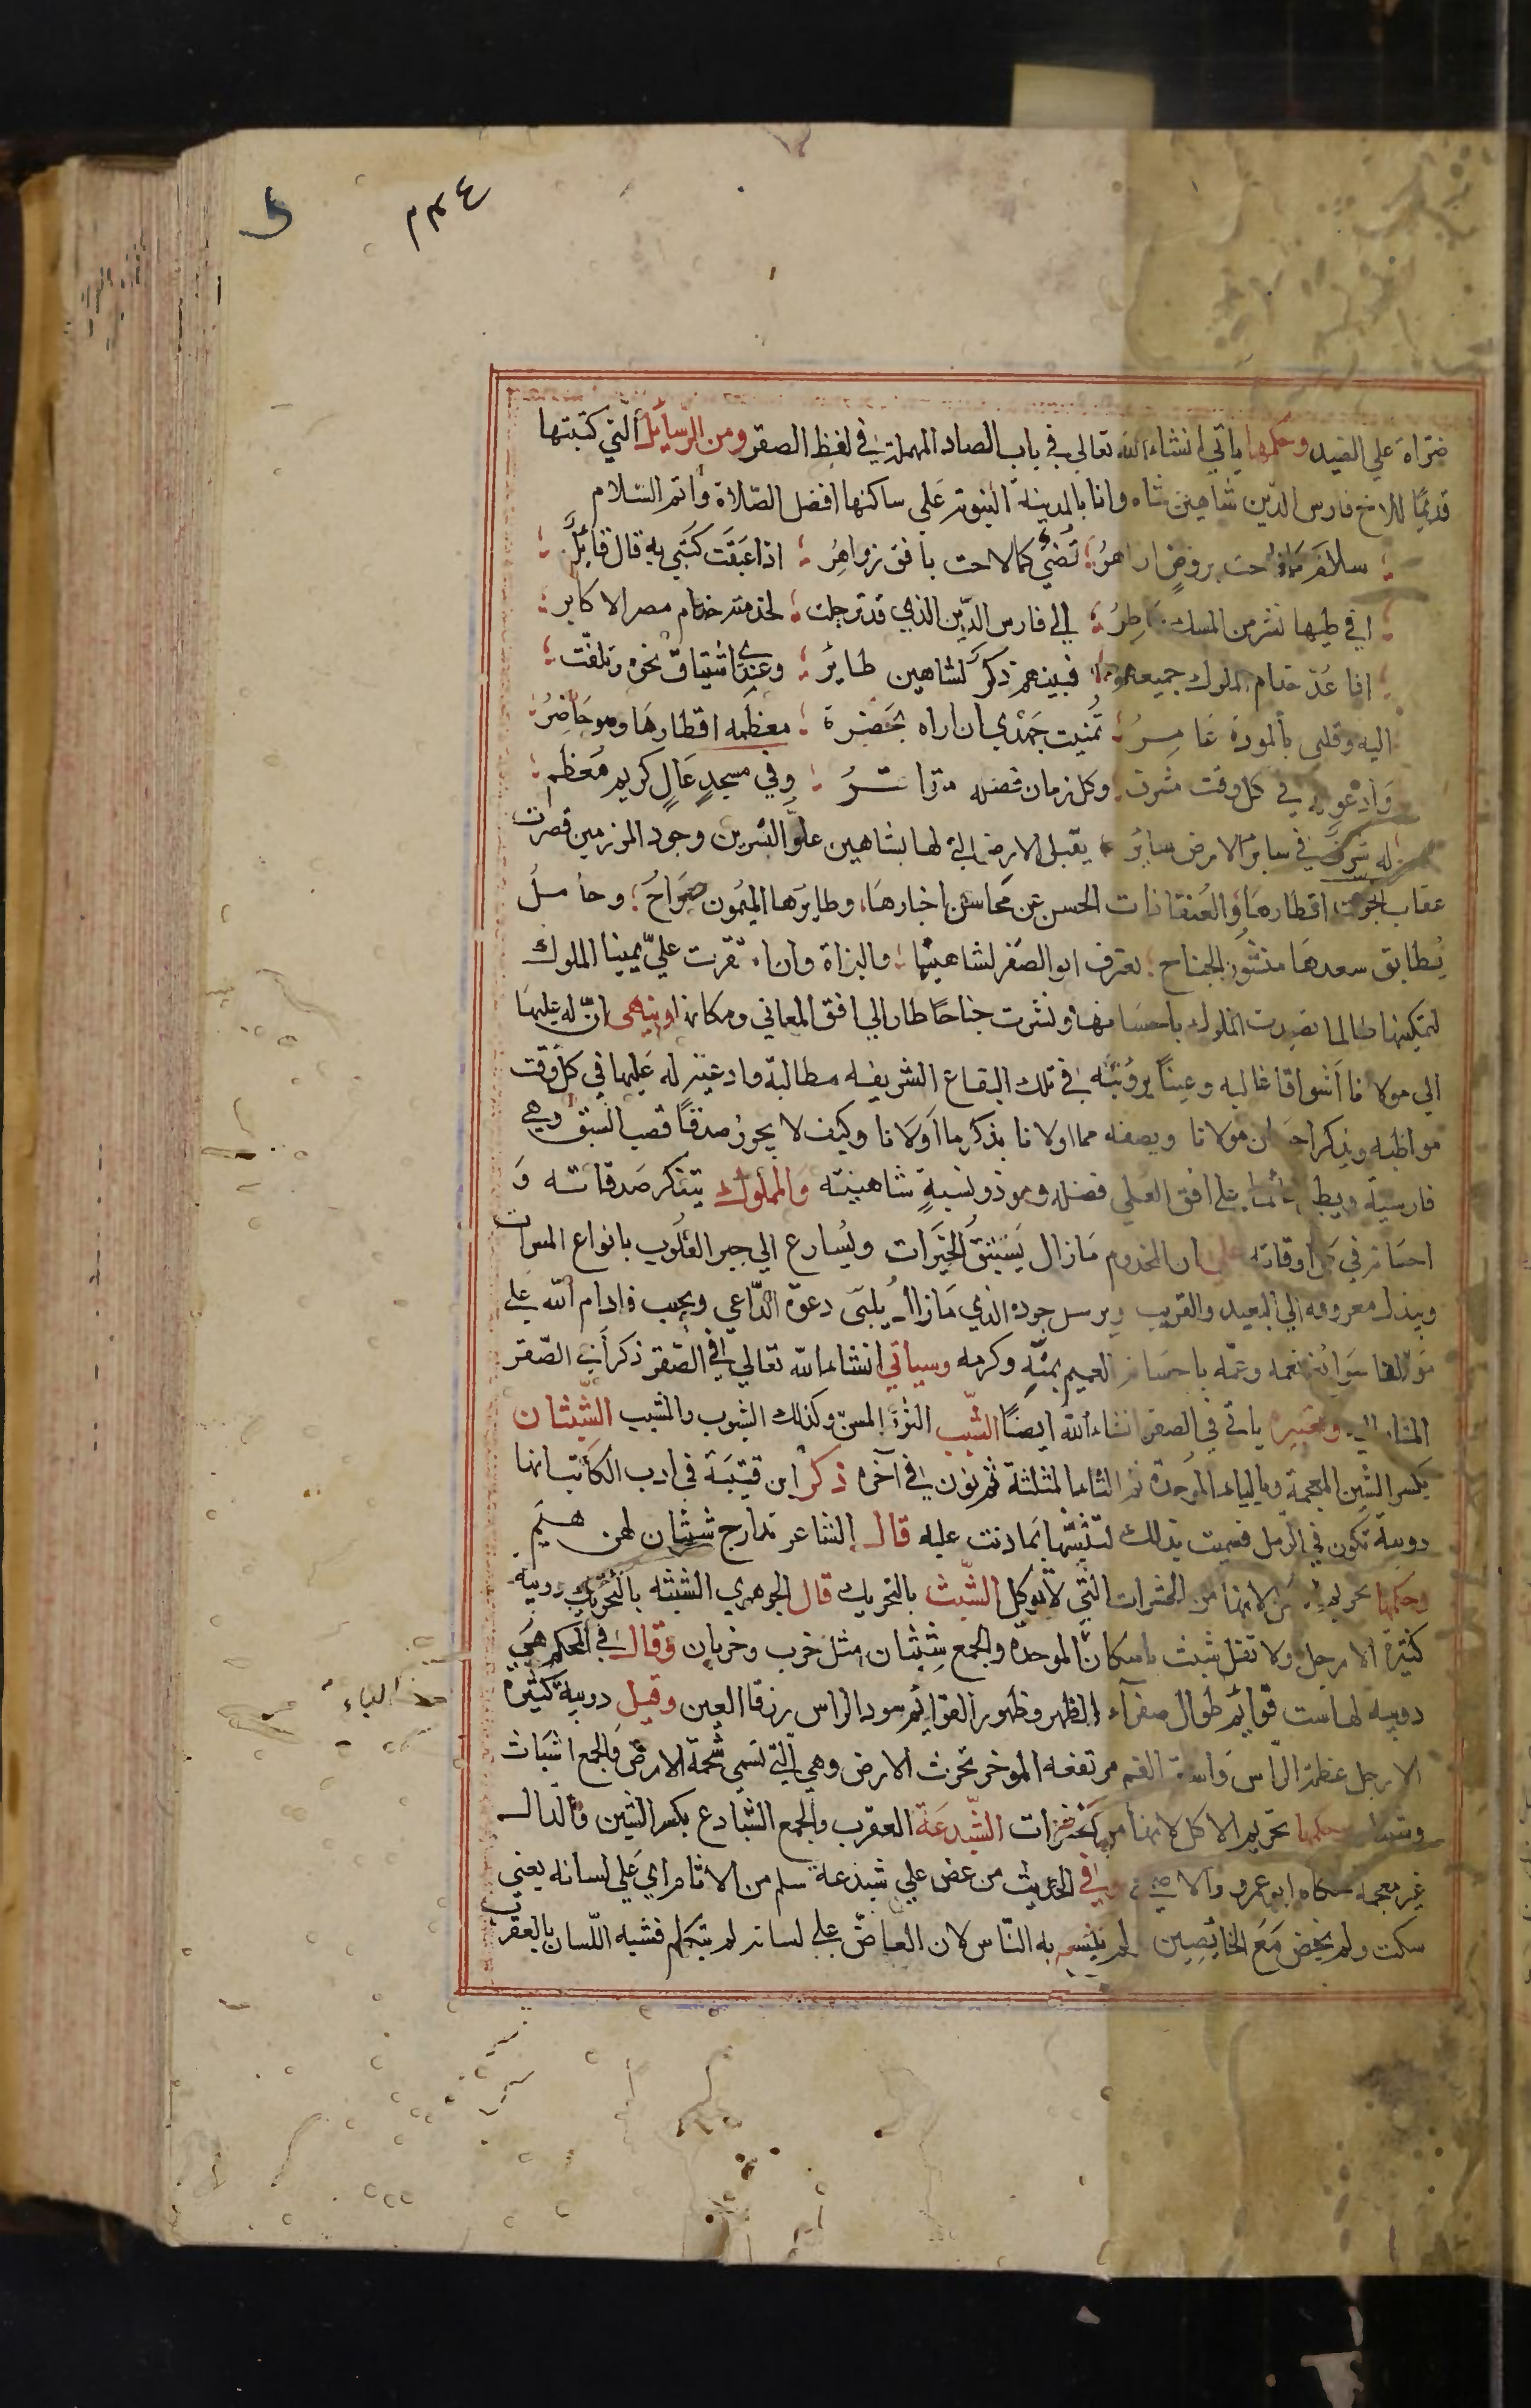 ٢٣٤
ضراة علي الصيد وحكمها ياتي انشاء الله تعالي في باب الصاد المهملة في لفظ الصقر ومن الرسائل التي كتبتها
قديمًا للاخ فارس الدين شاهين شاه وانا بالمدينة النبوية علي ساكنها افضل الصلاة واتم السلام
سلام كما فاحت بروض ازاهرُ تضيُ كما لاحت بافق زواهرُ اذا عبقت كتبي به قال قائل
افي طيها نشر من المسك عاطرُ الي فارس الدين الذي قد ترحلت لخدمته خدام مصر الاكابر
اذا عُدّ خدام الملوك جميعهم فبينهم ذكر لشاهين طائر وعندي اشتياق نحوه وتلفت
اليه وقلبي بالمودة عامرُ تمنيت جهدي ان اراه بحضرة معظمه اقطارها وهو حاضرُ
وادعو له في كل وقت مشرف وكل زمان فضله متواترُ وفي مسجدٍ عالٍ كريم معظم
له شرف في سائر الارض سائر يقبل الارض التي لها بشاهين علوّ النسرين وجود المرزمين قصرت
عقاب الجو عن اقطارها والعنقا ذات الحسن عن محاسن اخبارها، وطايرها الميمون صراحُ؛ وحاملُ
يُطابق سعدها منشور الجناح؛ يعترف ابو الصقر لشاهينها؛ والبزاة وان تقربت عليّ يمينا الملوك
لتمكينها طالما تصيدت الملوك باحسانها ونشرت جناحًا طار الي افق المعاني ومكانه وينهي انّ له عليها
الي مولانا اشواقا غالبه وعيناً برؤيته في تلك البقاع الشريفه مطالبة وادعية له عليها في كل وقت
مواظبه ويذكر احسان مولانا ويصفه مما اولانا بذكر ما اولانا وكيف لا يحوز صدقًا قصب السبق وهي
فارسية ويطير علي افق العلي فضله وهو ذو نسبةٍ شاهينيته والمملوك يتذكر صدقاته و
احسانه في اوقاته علي ان المخدوم مازال يستبق الخيرات ويُسارع الي جبر القلوب بانواع المسرات
ويبذل معروفه الي البعيد والقريب ويرسل جوده الذي مازال يلبي دعوة الداعي ويجيب فادام الله علي
مولانا سوابغ نعمه وعمّه باحسانه العميم بمنّه وكرمه وسياتي انشاء الله تعالي في الصقر ذكر ابي الصقر
المشار اليه وتعبيره ياتي في الصقر انشاء الله ايضًا الشبب الثور المسنّ وكذلك الشبوب والمشب الشبثان
بكسر الشين المعجمة وبالباء الموحدة ثم الثاء المثلثة ثم نون في آخره ذكر ابن قتيبة في ادب الكاتب انها
دويبة تكون في الرمل فسميت بذلك لتشبثها بما دبت عليه قال الشاعر مدارج شبثان لهن هميم
وحكمها تحريم الاكل لانها من الحشرات التي لا تؤكل الشبث بالتحريك قال الجوهري الشبثه بالتحريك دويبه
كثيرة الارجل ولا تقل شبث باسكان الموحدة والجمع شِبثان مثل خرب وخربان وقال في المحكم هي
دويبه لها ست قوائم طوال صفراء الظهر وظهور القوائم سود الراس زرقا العين وقيل دويبة كثيرة
الارجل عظمة الراس واسعة الفم مرتفعه الموخر تخرث الارض وهي التي تسمي شحمة الارض والجمع اشباث
وشبثان وحكمها تحريم الاكل لانها من الحشرات الشبدعة العقرب والجمع الشبادع بكسر الشين والدال
غير معجمة حكاه ابو عمرو والاصمعي وفي الحديث من عض علي شبذعة سلم من الاثام اي علي لسانه يعني
سكت ولم يخض مع الخائضين لم يلسع به الناس لان العاضّ علي لسانه لم يتكلم فشبه اللسان بالعقرب